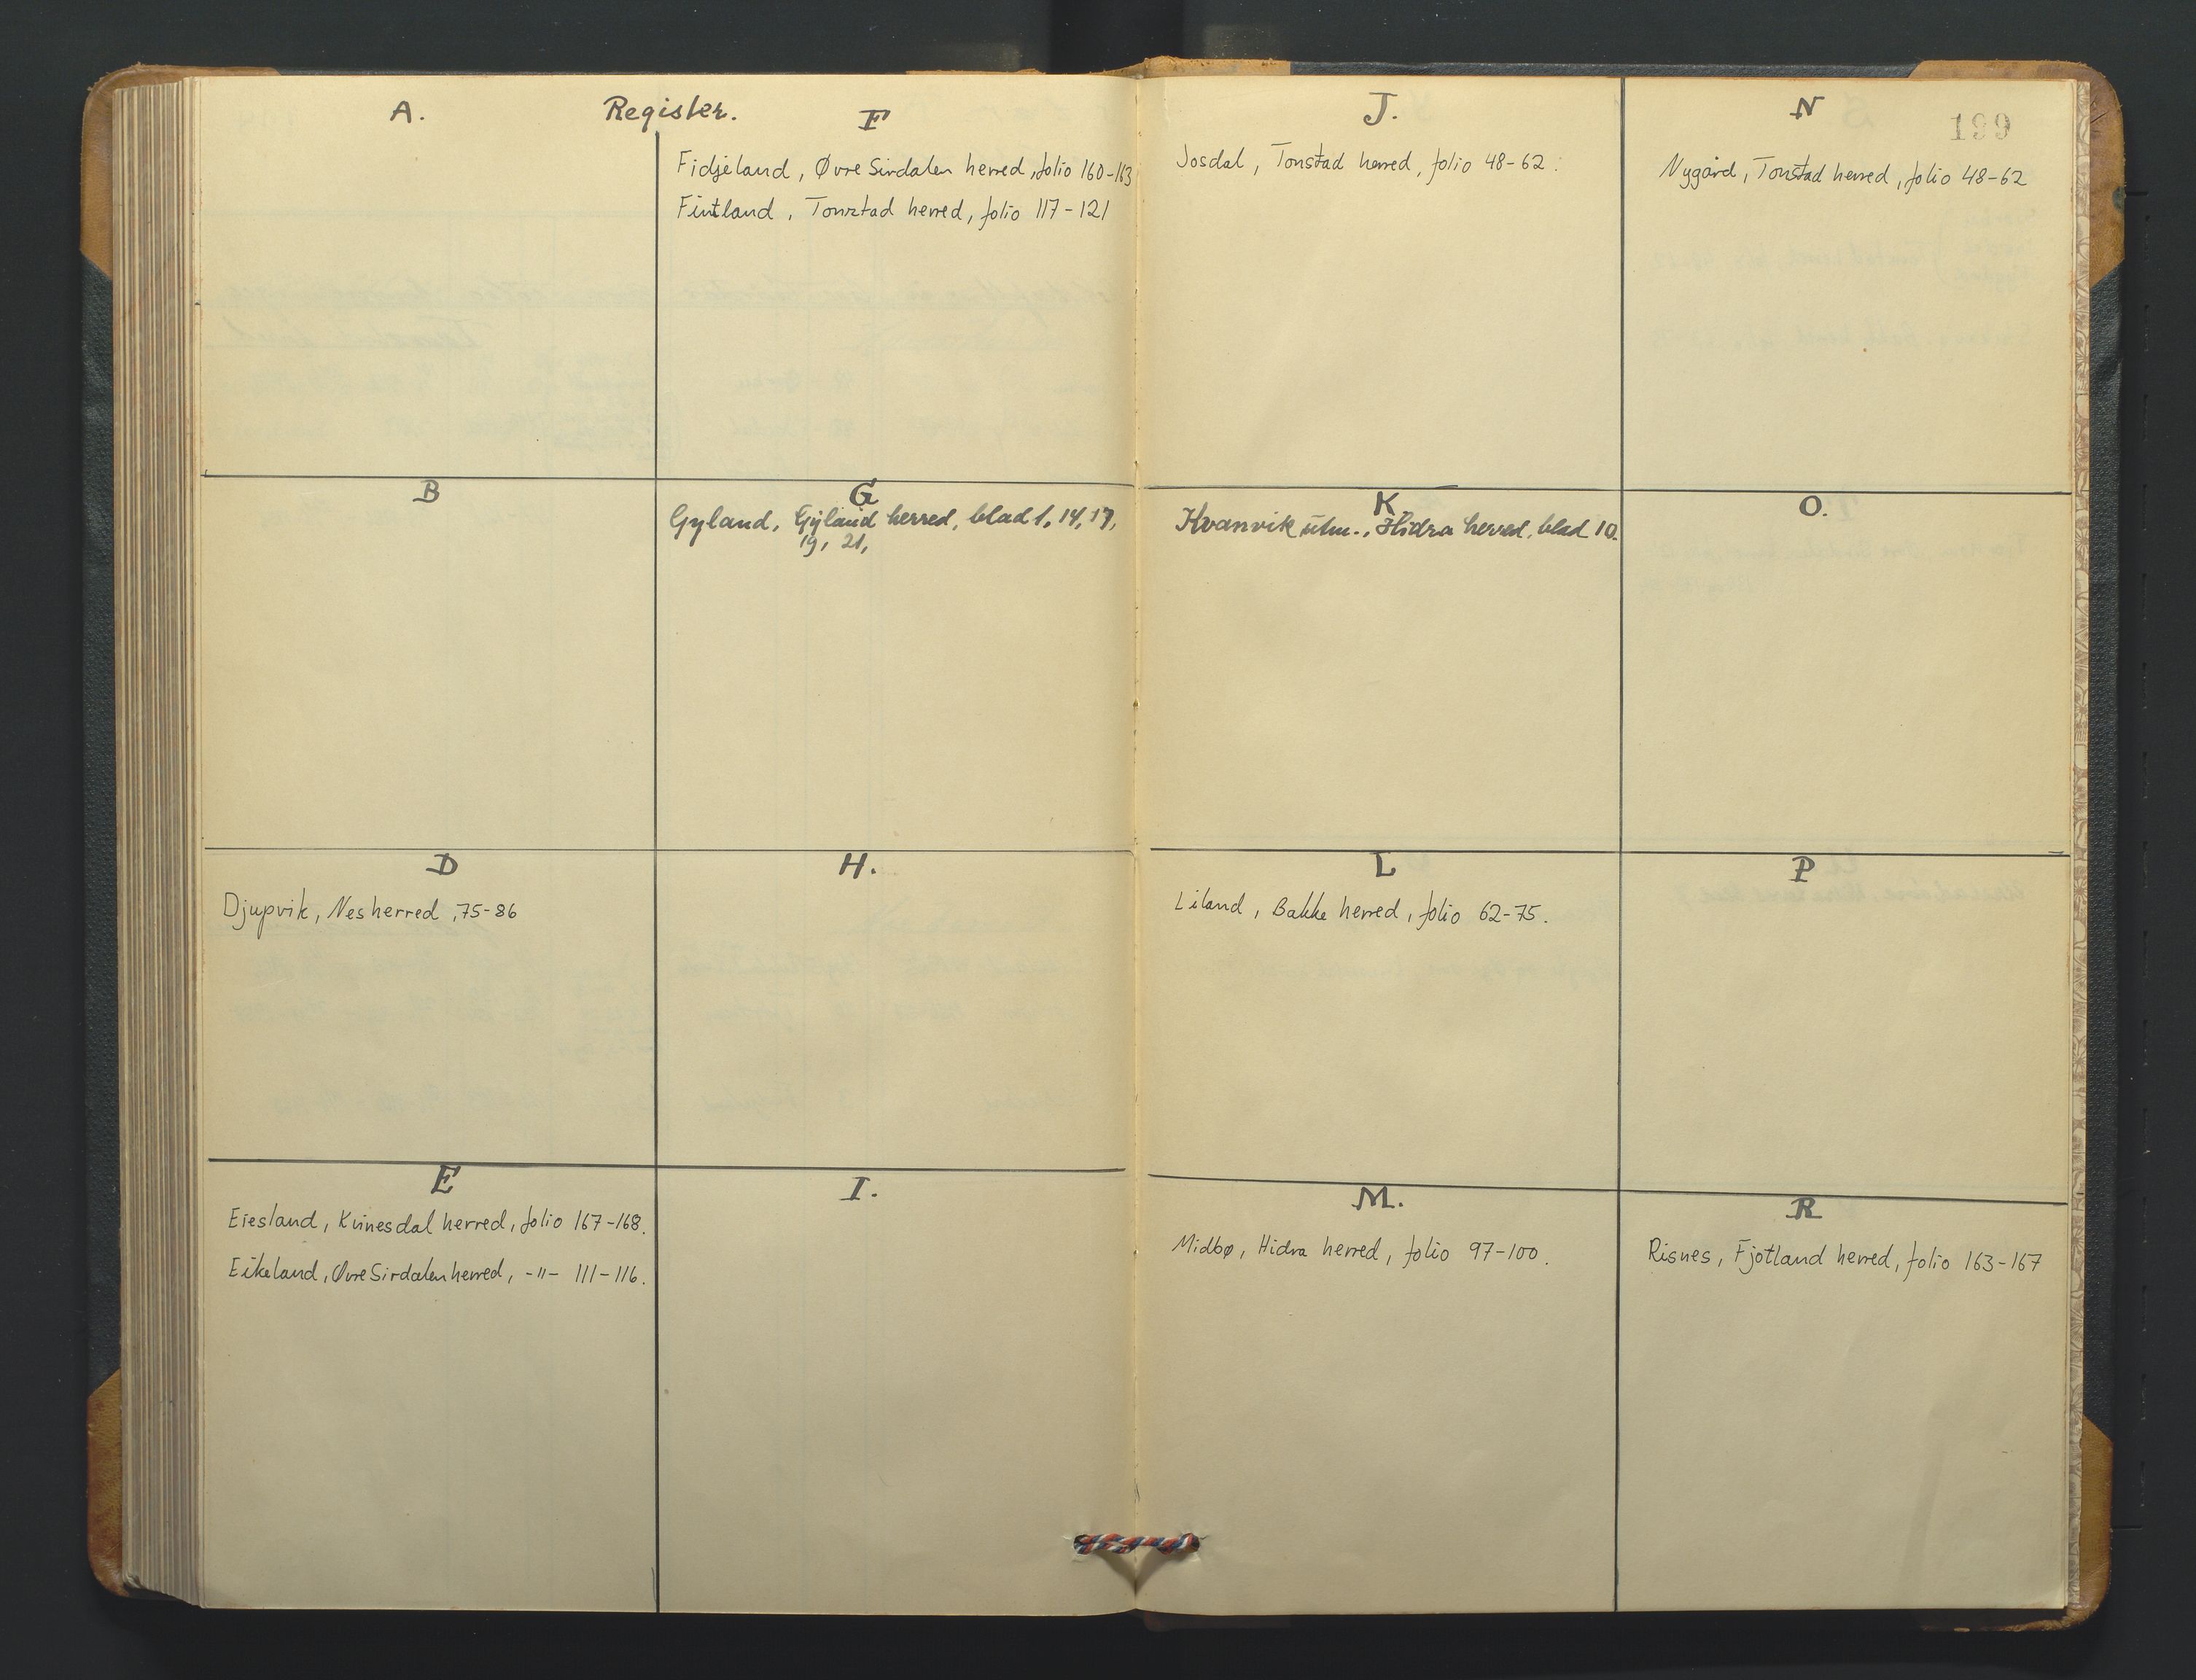 Register.
A.
B
D
Djupvik, Nes herred, 75-86
E
Eiesland, Kvinesdal herred, folio 167-168.
Eikeland, Øvre Sirdalen herred, -"- 111-116.
F
Fidjeland, Øvre Sirdalen herred, folio 160-163
Fintland, Tonstad herred, folio 117-121
G
Gyland, Gyland herred, blad 1, 14, 17,
19, 21,
H.
I.
J.
Josdal, Tonstad herred, folio 48-62.
K
Kvanvik utm., Hidra herred, blad 10.
L
Liland, Bakke herred, folio 62-75.
M.
Midbø, Hidra herred, folio 97-100.
N
199
Nygård, Tonstad herred, folio 48-62
O.
P
R
Risnes, Fjotland herred, folio 163-167